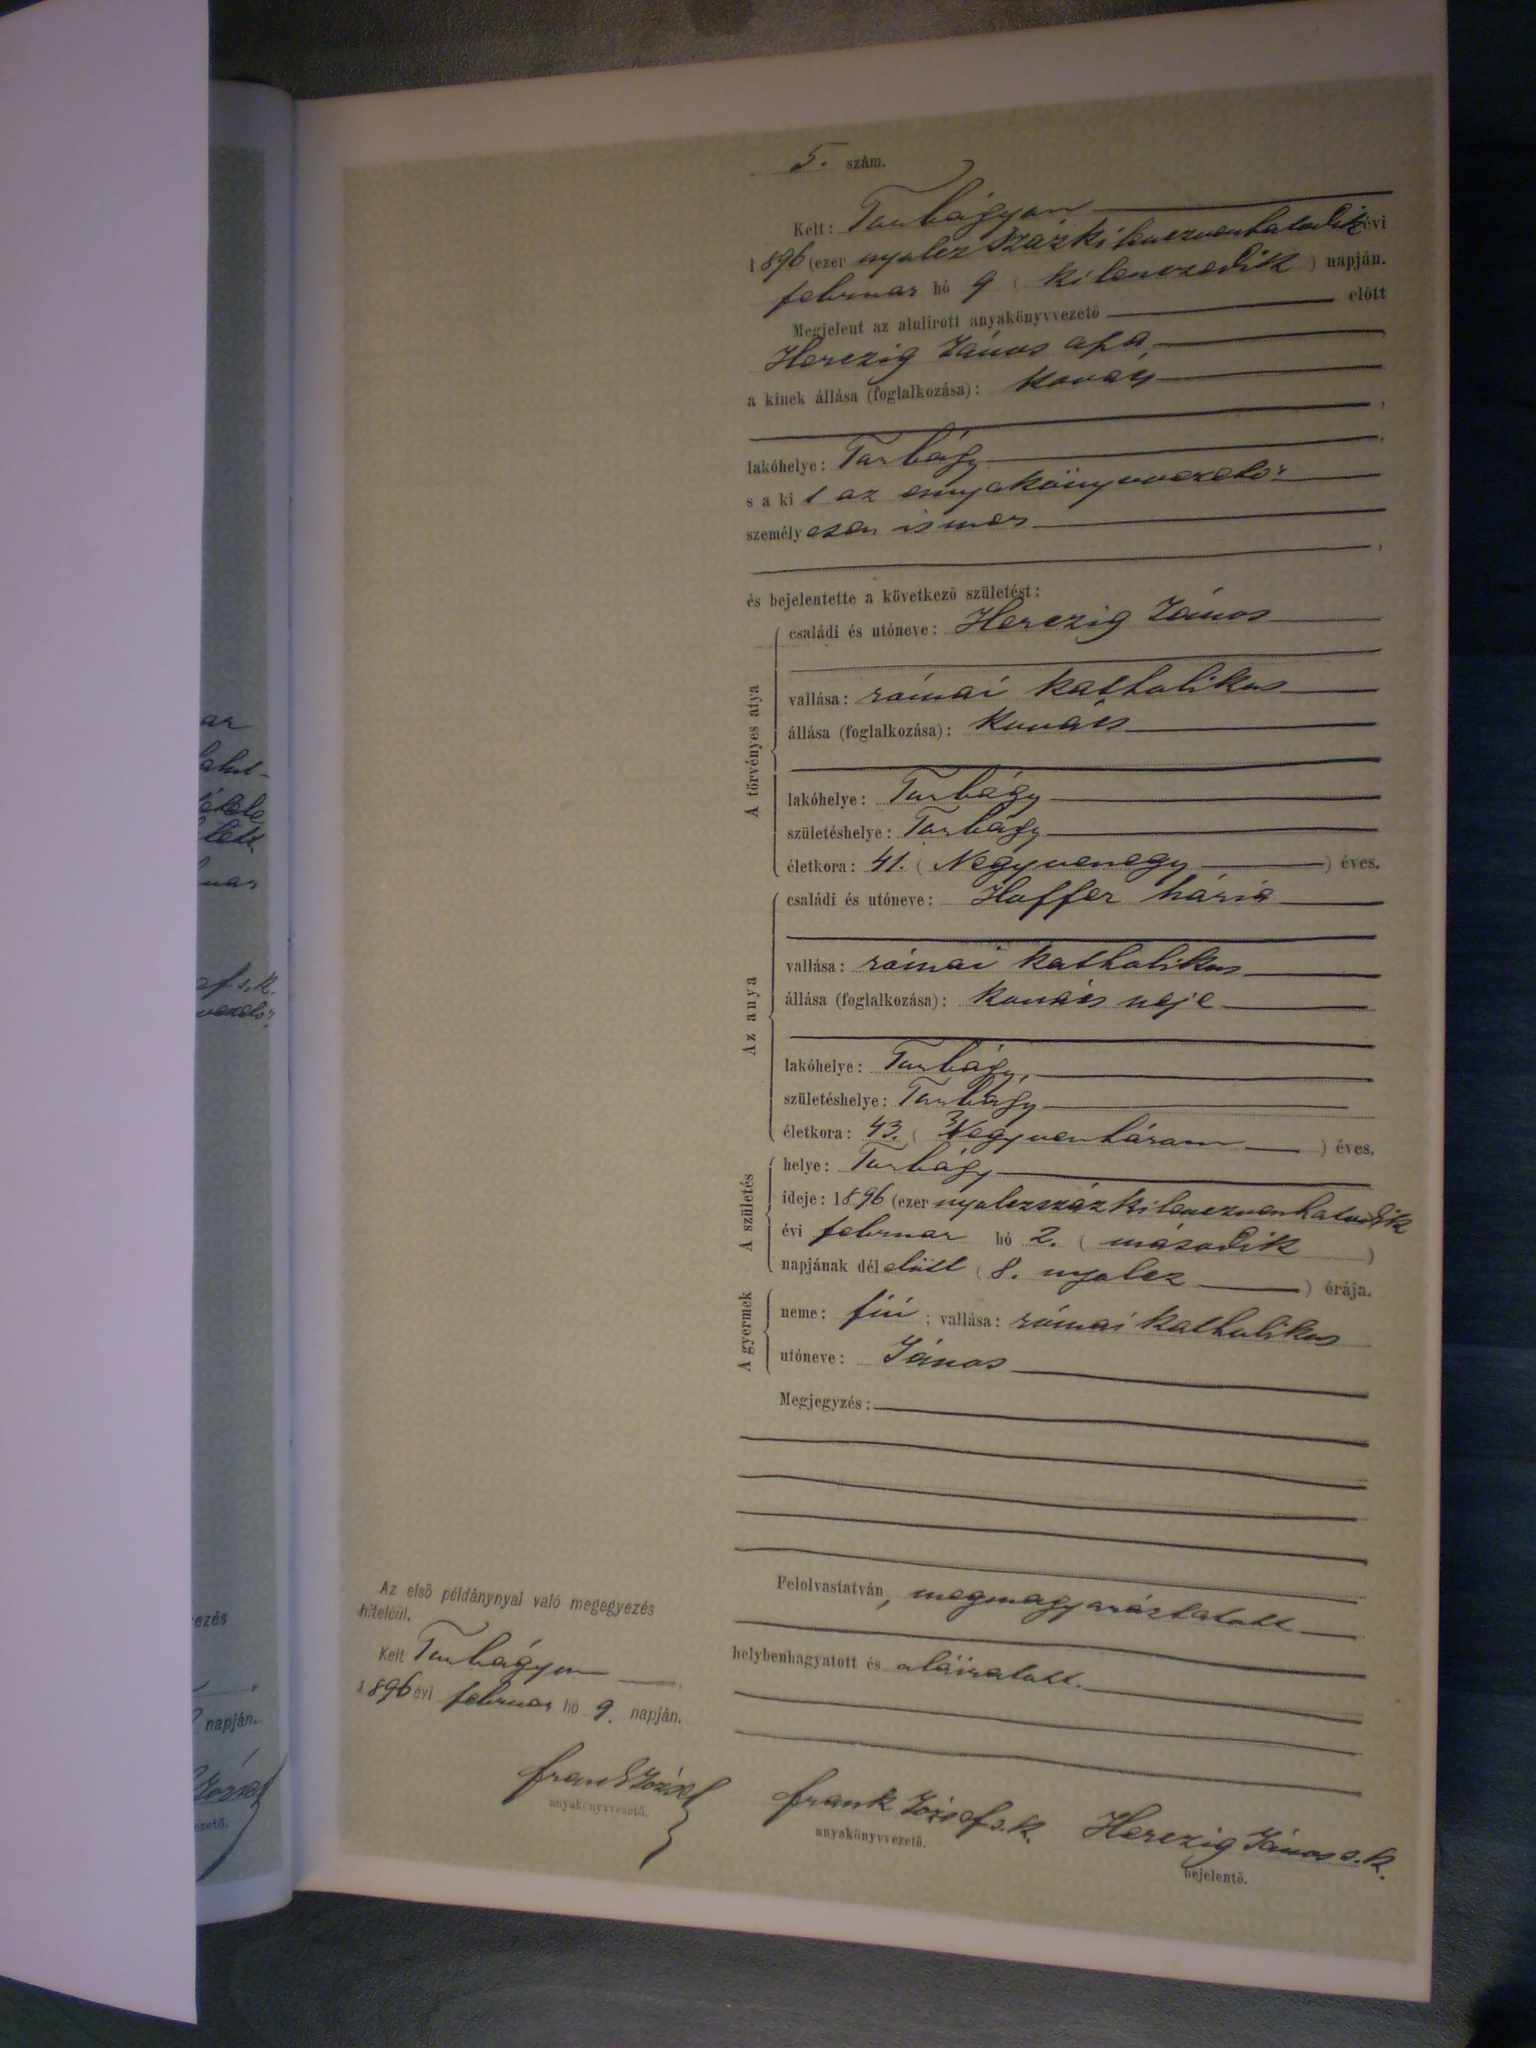 5. szám.
Kelt: Torbágyon
1896 (ezer nyolcz száz kilenczvenhatodik évi
februar hó 9 ( kilenczedik ) napján.
Megjelent az alulirott anyakönyvvezető előtt
Herczig János apa
a kinek állása (foglalkozása): kovács
lakóhelye: Torbágy
s a ki t az anyakönyvvezető
személy esen ismer
és bejelentette a következő születést:
A törvényes atya
családi és utóneve: Herczig János
vallása: római katholikus
állása (foglalkozása): kovács
lakóhelye: Torbágy
születéshelye: Torbágy
életkora: 41. ( Negyvenegy ) éves.
Az anya
családi és utóneve: Hoffer Mária
vallása: római katholikus
állása (foglalkozása): kovács neje
lakóhelye: Torbágy,
születéshelye: Torbágy
életkora: 43. ( Negyvenhárom ) éves.
A születés
helye: Torbágy
ideje: 1896 (ezer nyolczszáz kilenczvenhatodik
évi februar hó 2. ( második )
napjának dél előtt ( 8. nyolcz ) órája.
A gyermek
neme: fiú ; vallása: római katholikus
utóneve: János
Megjegyzés:
Felolvastatván, megmagyaráztatott
helybenhagyatott és aláiratott.
Frank József s.k. Herczig János s.k.
anyakönyvvezető. bejelentő.
Az első példánynyal való megegyezés
hiteléül.
Kelt Torbágyon
1896 évi februar hó 9. napján.
Frank József
anyakönyvvezető.
napján.